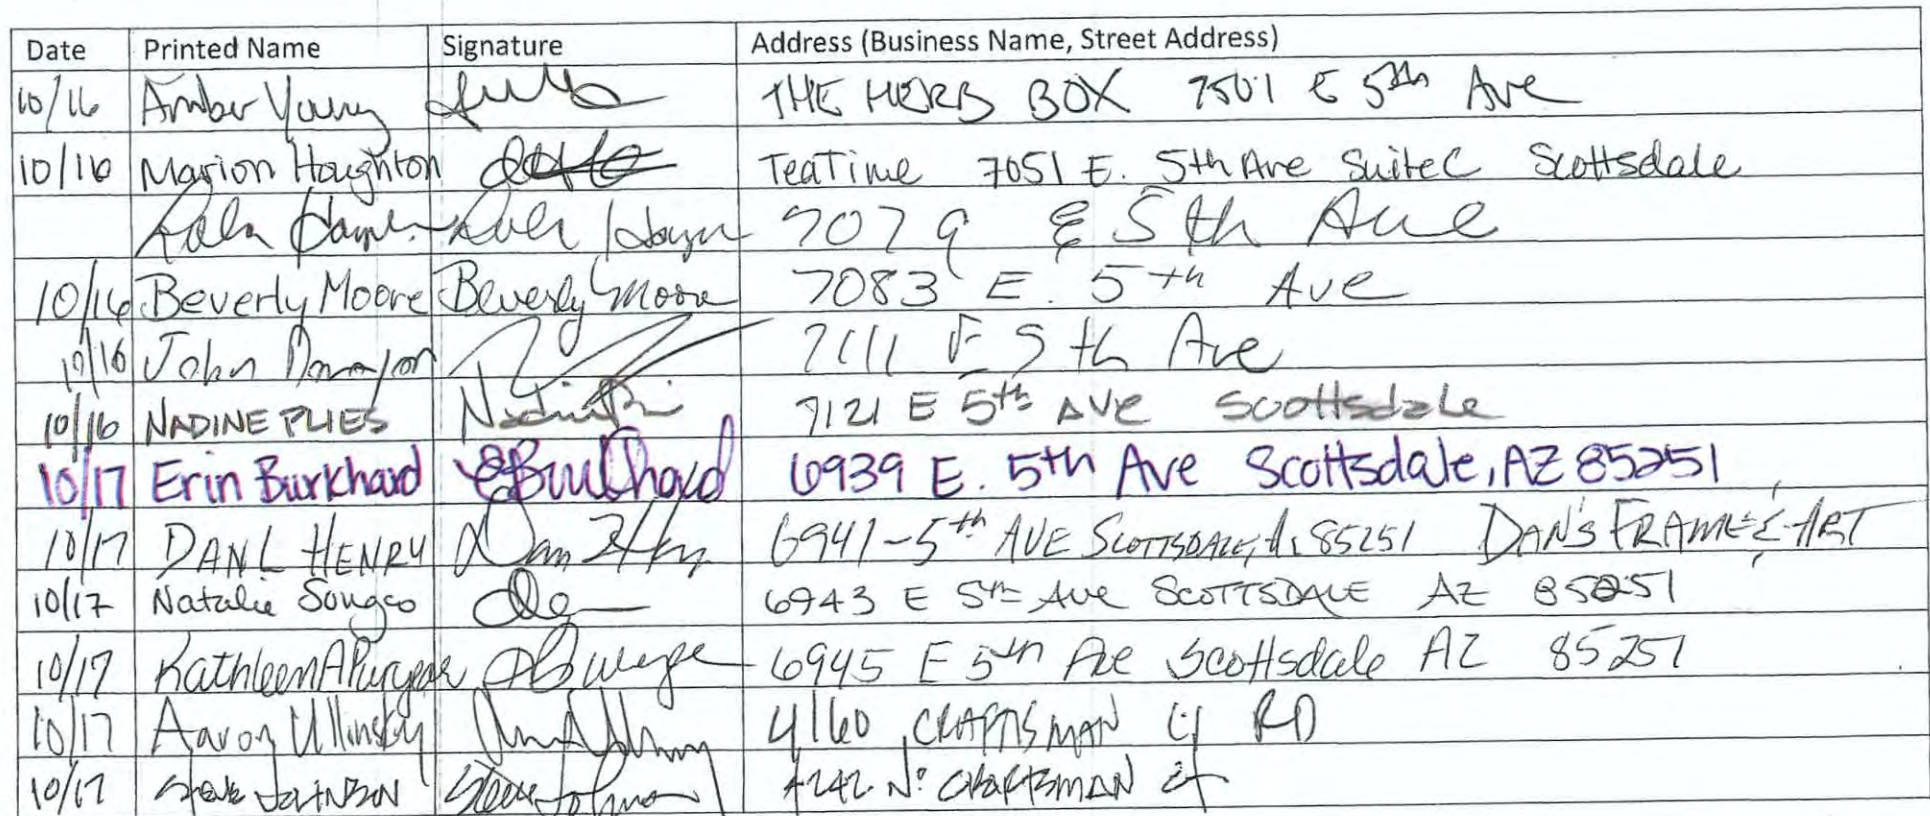 Date Printed Name Signature Address (Business Name, Street Address)
10/16 Amber Young THE HERB BOX 7501 E 5th Ave
10/16 Marion Houghton TeaTime 7051 E. 5th Ave Suite C Scottsdale
7079 E 5th Ave
10/16 Beverly Moore Beverly Moore 7083 E. 5th Ave
10/16 John 7111 E 5th Ave
10/16 NADINE PLIES 7121 E 5th AVE Scottsdale
10/17 Erin Burkhard EBurkhard 6939 E. 5th Ave Scottsdale, AZ 85251
10/17 DAN L HENRY 6941-5th AVE SCOTTSDALE, Az 85251 DAN'S FRAME & ART
10/17 Natalie Songco 6943 E 5th Ave SCOTTSDALE AZ 85251
10/17 Kathleen A 6945 E 5th Ave Scottsdale AZ 85251
10/17 Aaron Ullinsky 4160 CRAFTSMAN Ct RD
10/17 Steve JOHNSON Steve Johnson 4242 No CRAFTSMAN Ct